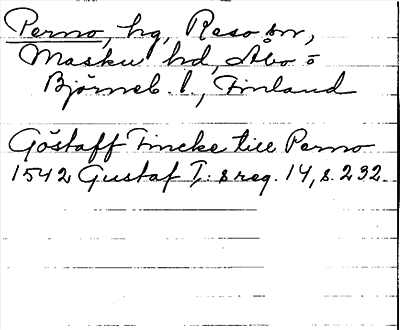 Perno, hg, Reso sn,
Masku hd, Åbo o
Björneb. l., Finland
Göstaff Fincke till Perno
1542 Gustaf I: s reg. 14, s. 232.